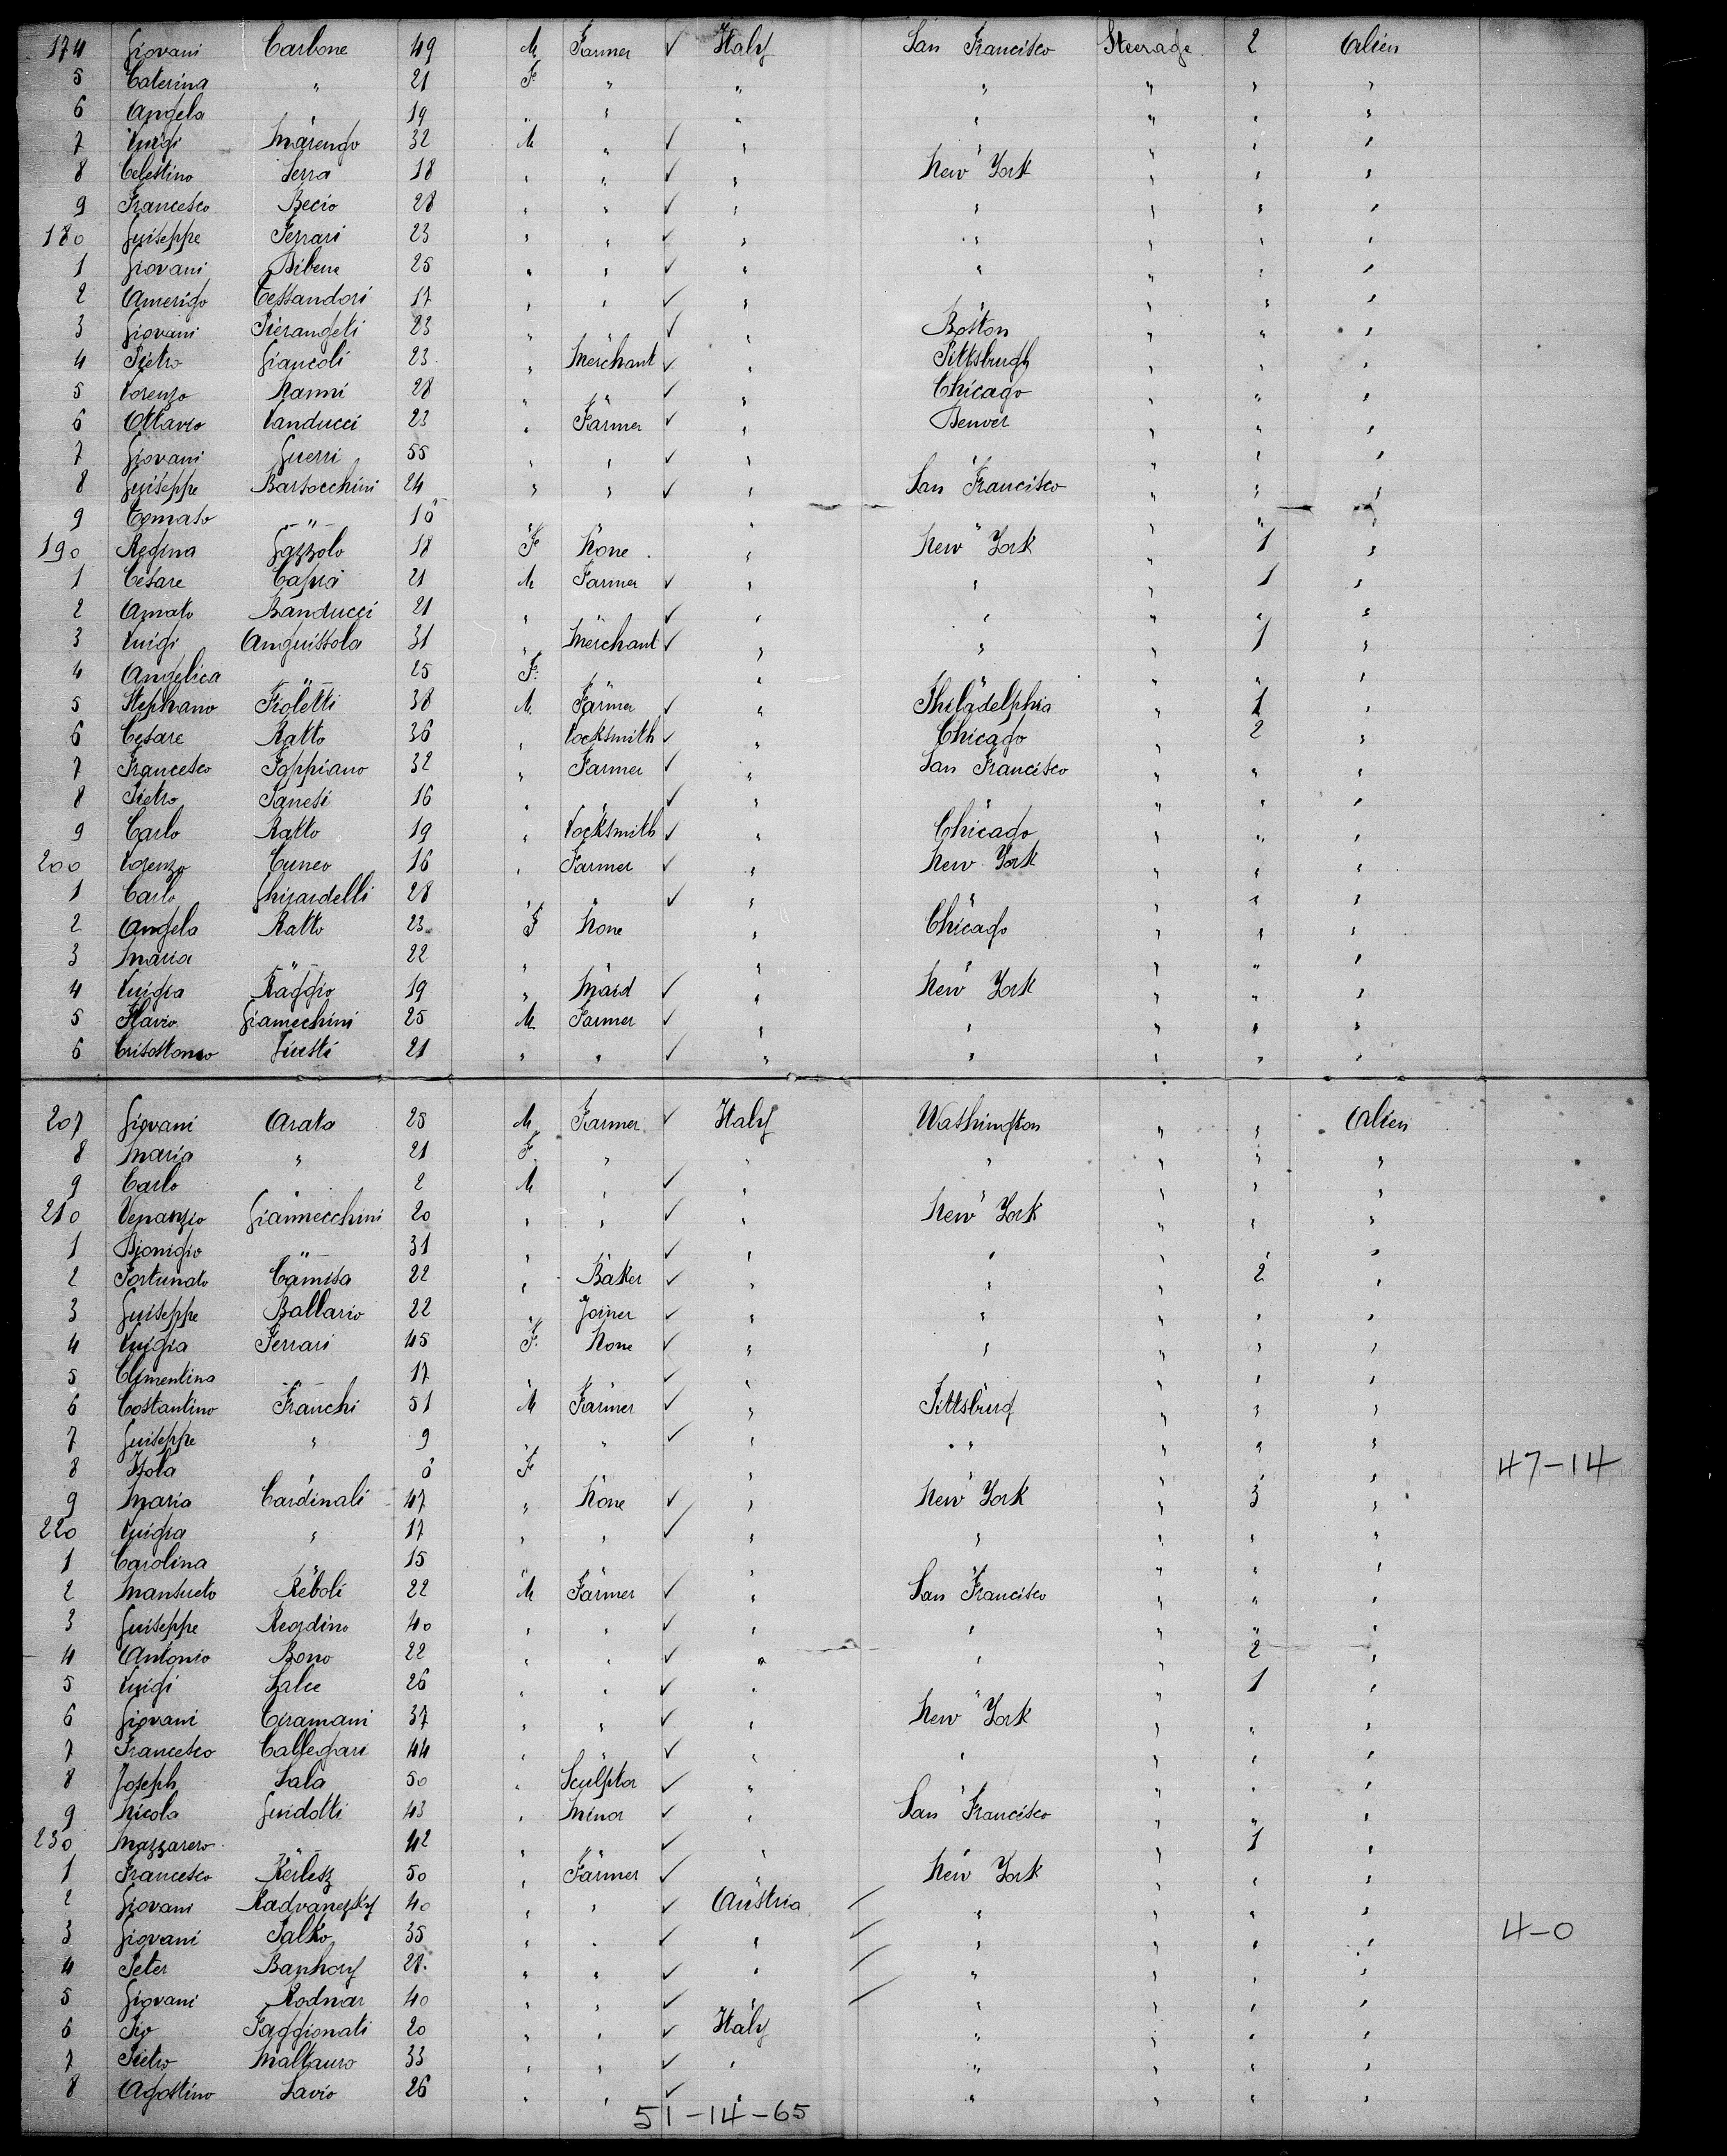 174 Giovani Carbone 49 M Farmer ✓ Italy San Francisco Steerage 2 Alien
5 Caterina " 21 F " " " " " "
6 Angela " 19 " " " " " " "
7 Luigi Marengo 32 M " ✓ " " " " "
8 Celestino Serra 18 " " ✓ " New York " " "
9 Francesco Becio 28 " " ✓ " " " " "
180 Guiseppe Ferrari 23 " " ✓ " " " " "
1 Giovani Bibene 25 " " ✓ " " " " "
2 Amerigo Tessandori 17 " " ✓ " " " " "
3 Giovani Pierangeli 23 " " ✓ " Boston " " "
4 Pietro Giancoli 23 " Merchant ✓ " Pittsburgh " " "
5 Lorenzo Nanni 28 " " ✓ " Chicago " " "
6 Ottavio Vanducci 23 " Farmer ✓ " Denver " " "
7 Giovani Guerri 55 " " ✓ " " " " "
8 Guiseppe Bartocchini 24 " " ✓ " San Francisco " " "
9 Tomaso " 10 " " " " " " "
190 Regina Gazzolo 18 F None " New York " 1 "
1 Cesare Capra 21 M Farmer ✓ " " " 1 "
2 Amato Banducci 21 " " ✓ " " " " "
3 Luigi Anguissola 31 " Merchant ✓ " " " 1 "
4 Angelica " 25 F " " " " " "
5 Stephano Fioletti 38 M Farmer ✓ " Philadelphia " 1 "
6 Cesare Ratto 36 " Locksmith ✓ " Chicago " 2 "
7 Francesco Foppiano 32 " Farmer ✓ " San Francisco " " "
8 Pietro Sanesi 16 " " ✓ " " " " "
9 Carlo Ratto 19 " Locksmith ✓ " Chicago " " "
200 Lorenzo Cuneo 16 " Farmer ✓ " New York " " "
1 Carlo Ghirardelli 28 " " ✓ " " " " "
2 Angela Ratto 23 F None " Chicago " " "
3 Maria " 22 " " " " " " "
4 Luigia Raggio 19 " Maid ✓ " New York " " "
5 Flavio Giannechini 25 M Farmer ✓ " " " " "
6 Crisostomo Giusti 21 " " ✓ " " " " "
207 Giovani Arata 25 M Farmer ✓ Italy Washington " " Alien
8 Maria " 21 F " " " " " "
9 Carlo " 2 M " ✓ " " " " "
210 Venanzio Giannecchini 20 " " ✓ " New York " " "
1 Dionigio " 31 " " ✓ " " " " "
2 Fortunato Camisa 22 " Baker ✓ " " " 2 "
3 Guiseppe Ballario 22 " Joiner ✓ " " " " "
4 Luigia Ferrari 45 F None ✓ " " " " "
5 Clementina " 17 " " ✓ " " " " "
6 Costantino Franchi 51 M Farmer ✓ " Pittsburg " " "
7 Guiseppe " 9 " " ✓ " " " " "
8 Isola " 6 F " " " " " " 47-14
9 Maria Cardinali 47 " None ✓ " New York " 3 "
220 Luigia " 17 " " ✓ " " " " "
1 Carolina " 15 " " " " " " "
2 Mansueto Reboli 22 M Farmer ✓ " San Francisco " " "
3 Guiseppe Reordino 40 " " ✓ " " " " "
4 Antonio Bono 22 " " ✓ " " " 2 "
5 Luigi Salce 26 " " ✓ " " " 1 "
6 Giovani Ciramani 37 " " ✓ " New York " " "
7 Francesco Callegari 44 " " ✓ " " " " "
8 Joseph Sala 50 " Sculptor ✓ " " " " "
9 Nicola Guidotti 43 " Minor ✓ " San Francisco " " "
230 Mazzarero " 42 " " ✓ " " " 1 "
1 Francesco Kerlesz 50 " Farmer ✓ " New York " " "
2 Giovani Radvanezky 40 " " ✓ Austria / " " " "
3 Giovani Salko 35 " " ✓ " / " " " " 4-0
4 Peter Banhory 28 " " ✓ " / " " " "
5 Giovani Rodnar 40 " " ✓ " / " " " "
6 Pio Faggionati 20 " " ✓ Italy " " " "
7 Pietro Maltauro 33 " " ✓ " " " " "
8 Agostino Savio 26 " " ✓ " " " " "
51-14-65